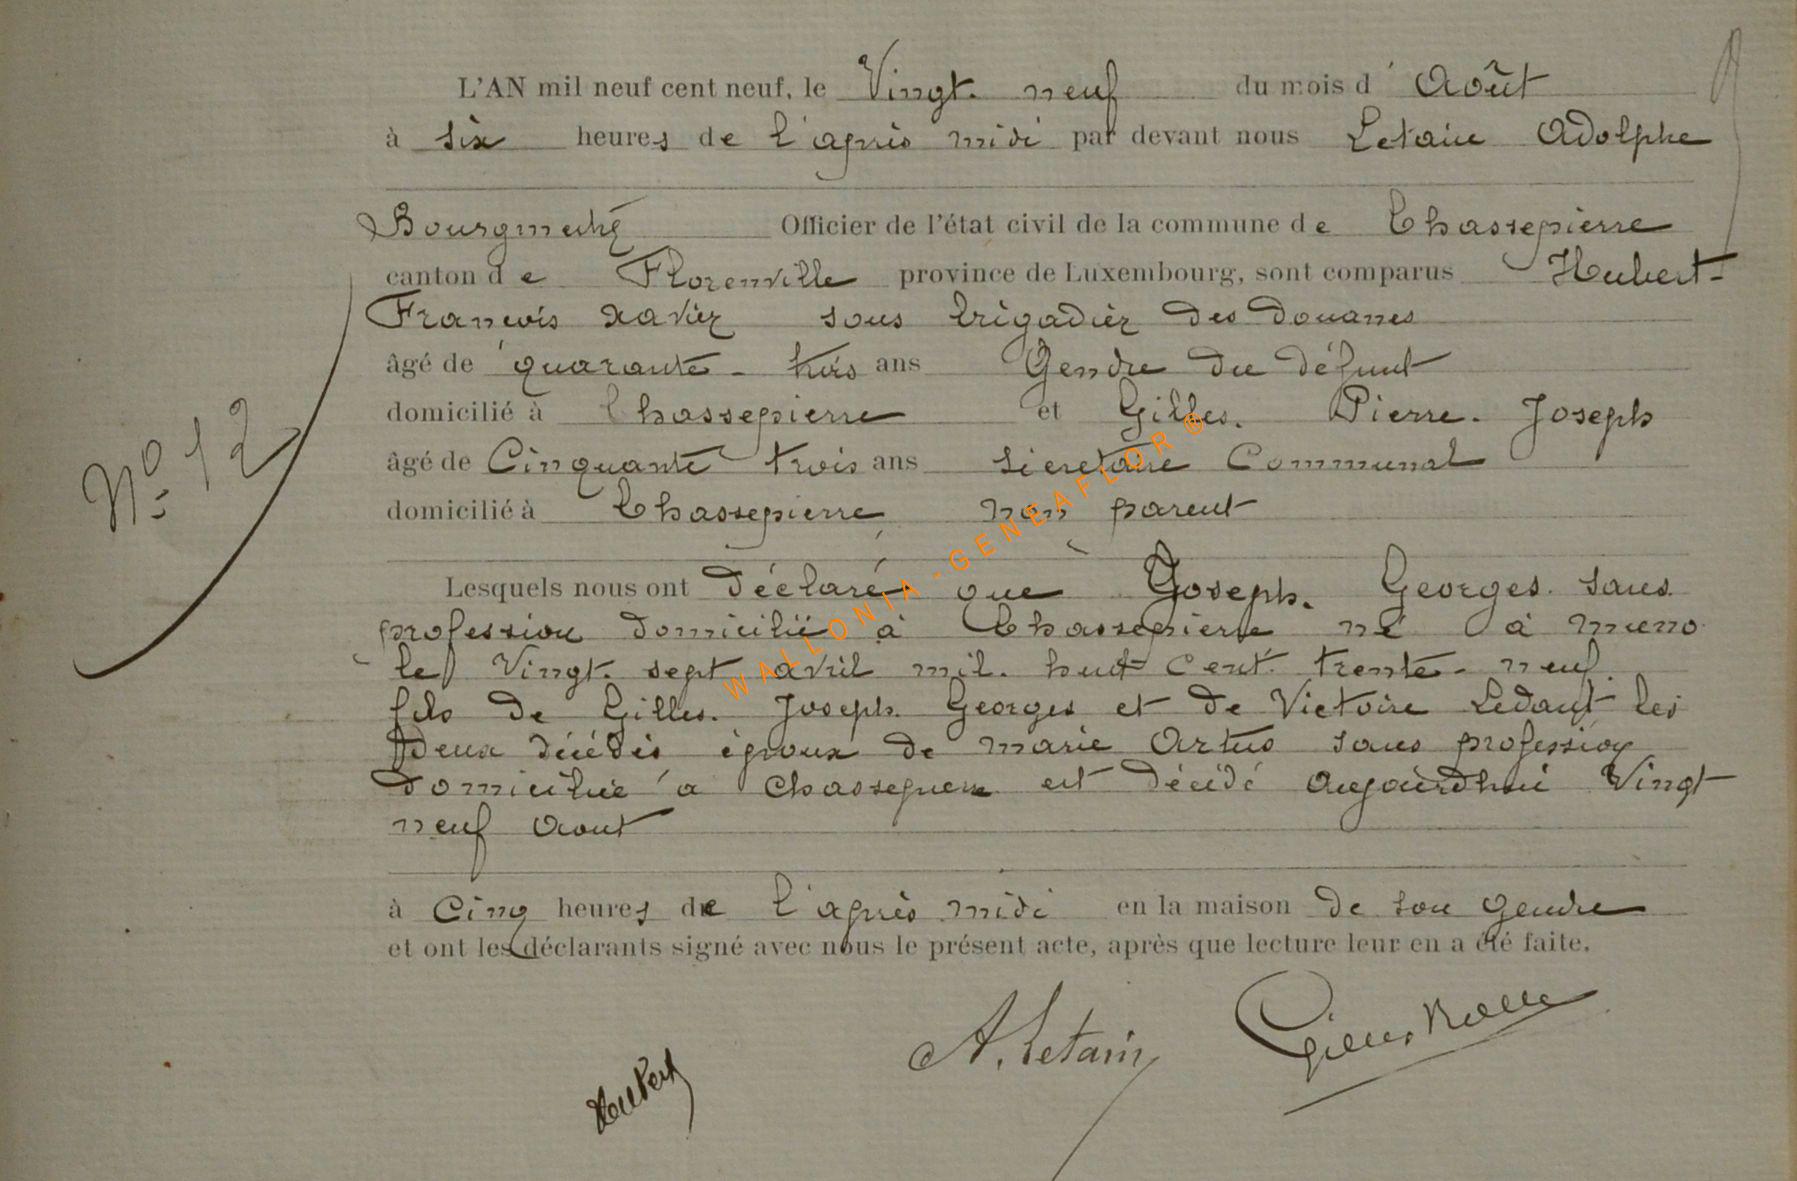 L'AN mil neuf cent neuf, le Vingt. neuf du mois d'Août
à six heures de l'après midi par devant nous Letain Adolphe
Bourgmestre Officier de l'état civil de la commune de Chassepierre
canton de Florenville province de Luxembourg, sont comparus Hubert-
François Xavier sous brigadier des douanes
âgé de quarante-trois ans Gendre du défunt
domicilié à Chassepierre et Gilles. Pierre. Joseph
âgé de Cinquante trois ans secretaire Communal
domicilié à Chassepierre non parent
Lesquels nous ont déclaré que Joseph. Georges. sans
profession domicilié à Chassepierre né à Muno
le Vingt. sept avril mil. huit cent trente-neuf
fils de Gilles. Joseph. Georges et de Victoire Ledant les
deux décédés époux de Marie Artus sans profession
domiciliée à Chassepierre est décédé aujourdhui Vingt
neuf Aout
à Cinq heures de l'après midi en la maison de son gendre
et ont les déclarants signé avec nous le présent acte, après que lecture leur en a été faite.
Nº 12
Hubert
A. Letain
Gilles
WALLONIA-GENEAFLOR ®